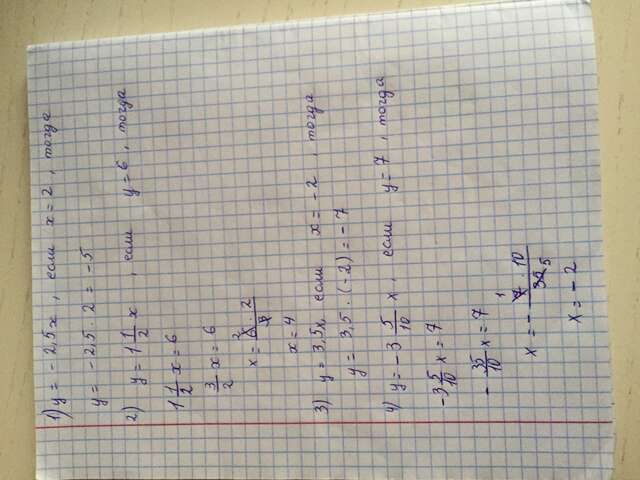 1) y = -2,5x, если x = 2, тогда
y = -2,5 · 2 = -5
2) y = 1 1/2 x, если y = 6, тогда
1 1/2 x = 6
3/2 x = 6
x = 6 · 2 / 3 2
x = 4
3) y = 3,5x, если x = -2, тогда
y = 3,5 · (-2) = -7
4) y = -3 5/10 x, если y = 7, тогда
-3 5/10 x = 7
-35/10 x = 7
x = - 7 1 · 10 / 35 5
x = -2